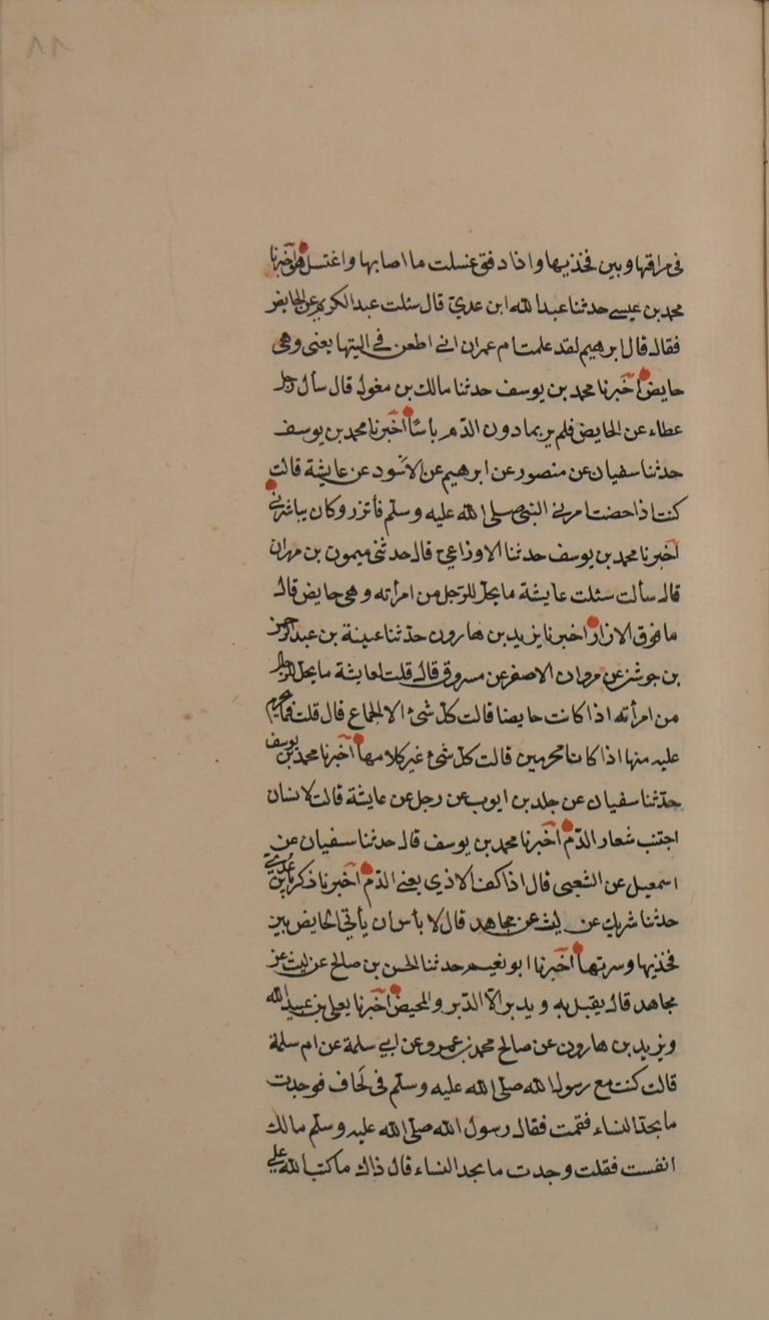 ٨٨
فى مراقها وبين فخذيها واذا دفق غسلت ما اصابها واغتسل هو اخبرنا
محمد بن عيسى حدثنا عبد الله ابن عدي قال سئلت عبد الكريم عن الحايض
فقال قال ابرهيم لقد علمت ام عمران اني اطعن في اليتها يعنى وهى
حايض اخبرنا محمد بن يوسف حدثنا مالك بن مغول قال سأل رجل
عطاء عن الحايض فلم ير بما دون الدّم باسًا اخبرنا محمد بن يوسف
حدثنا سفيان عن منصور عن ابرهيم عن الاسود عن عايشة قالت
كنت اذا حضت امرني النبي صلى الله عليه وسلم فأتزر وكان يباشرني
اخبرنا محمد بن يوسف حدثنا الاوزاعي قال حدثنى ميمون بن مهران
قال سألت سئلت عايشة ما يحل للرجل من امرأته وهى حايض قال
ما فوق الازار اخبرنا يزيد بن هارون حدثنا عيينة بن عبد الرحمن
بن جوشن عن مروان الاصفر عن مسروق قال قلت لعايشة ما يحل للرجل
من امرأته اذا كانت حايضا قالت كلّ شئ الا الجماع قال قلت فما يحرم
عليه منها اذا كانا محرمين قالت كلّ شئ غير كلامها اخبرنا محمد بن يوسف
حدّثنا سفيان عن جلد بن ايوب عن رجل عن عايشة قالت لانسان
اجتنب شعار الدّم اخبرنا محمد بن يوسف قال حدثنا سفيان عن
اسمعيل عن الشعبى قال اذا كف الاذى يعنى الدّم اخبرنا زكريا بن عدي
حدثنا شريك عن ليث عن مجاهد قال لا بأس ان يأتى الحايض بين
فخذيها وسرتها اخبرنا ابو نعيم حدثنا الحسن بن صالح عن ليث عن
مجاهد قال يقبل به ويدبر الّا الدّبر والمحيض اخبرنا يعلى بن عبيد الله
ويزيد بن هارون عن صالح محمد بن عمرو عن ابي سلمة عن ام سلمة
قالت كنت مع رسول الله صلى الله عليه وسلم فى لحاف فوجدت
ما يجد النساء فقمت فقال رسول الله صلى الله عليه وسلم مالك
انفست فقلت وجدت ما يجد النساء قال ذاك ما كتب الله على